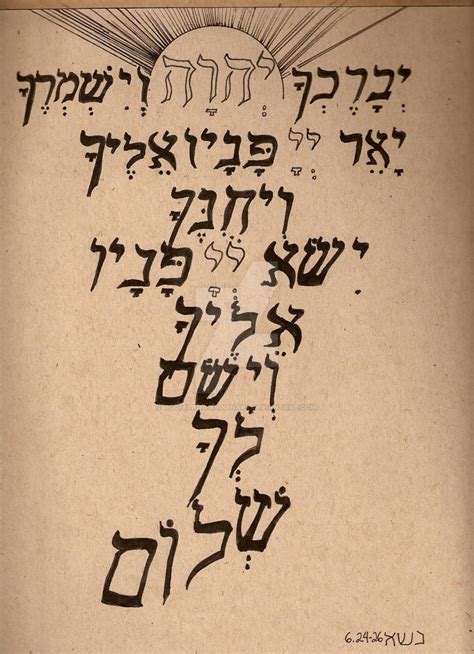 יְבָרֶכְךָ יְהוָה וְיִשְׁמְרֶךָ
יָאֵר יְיָ פָּנָיו אֵלֶיךָ
וִיחֻנֶּךָּ
יִשָּׂא יְיָ פָּנָיו
אֵלֶיךָ
וְיָשֵׂם
לְךָ
שָׁלוֹם
נשא 6.24-26